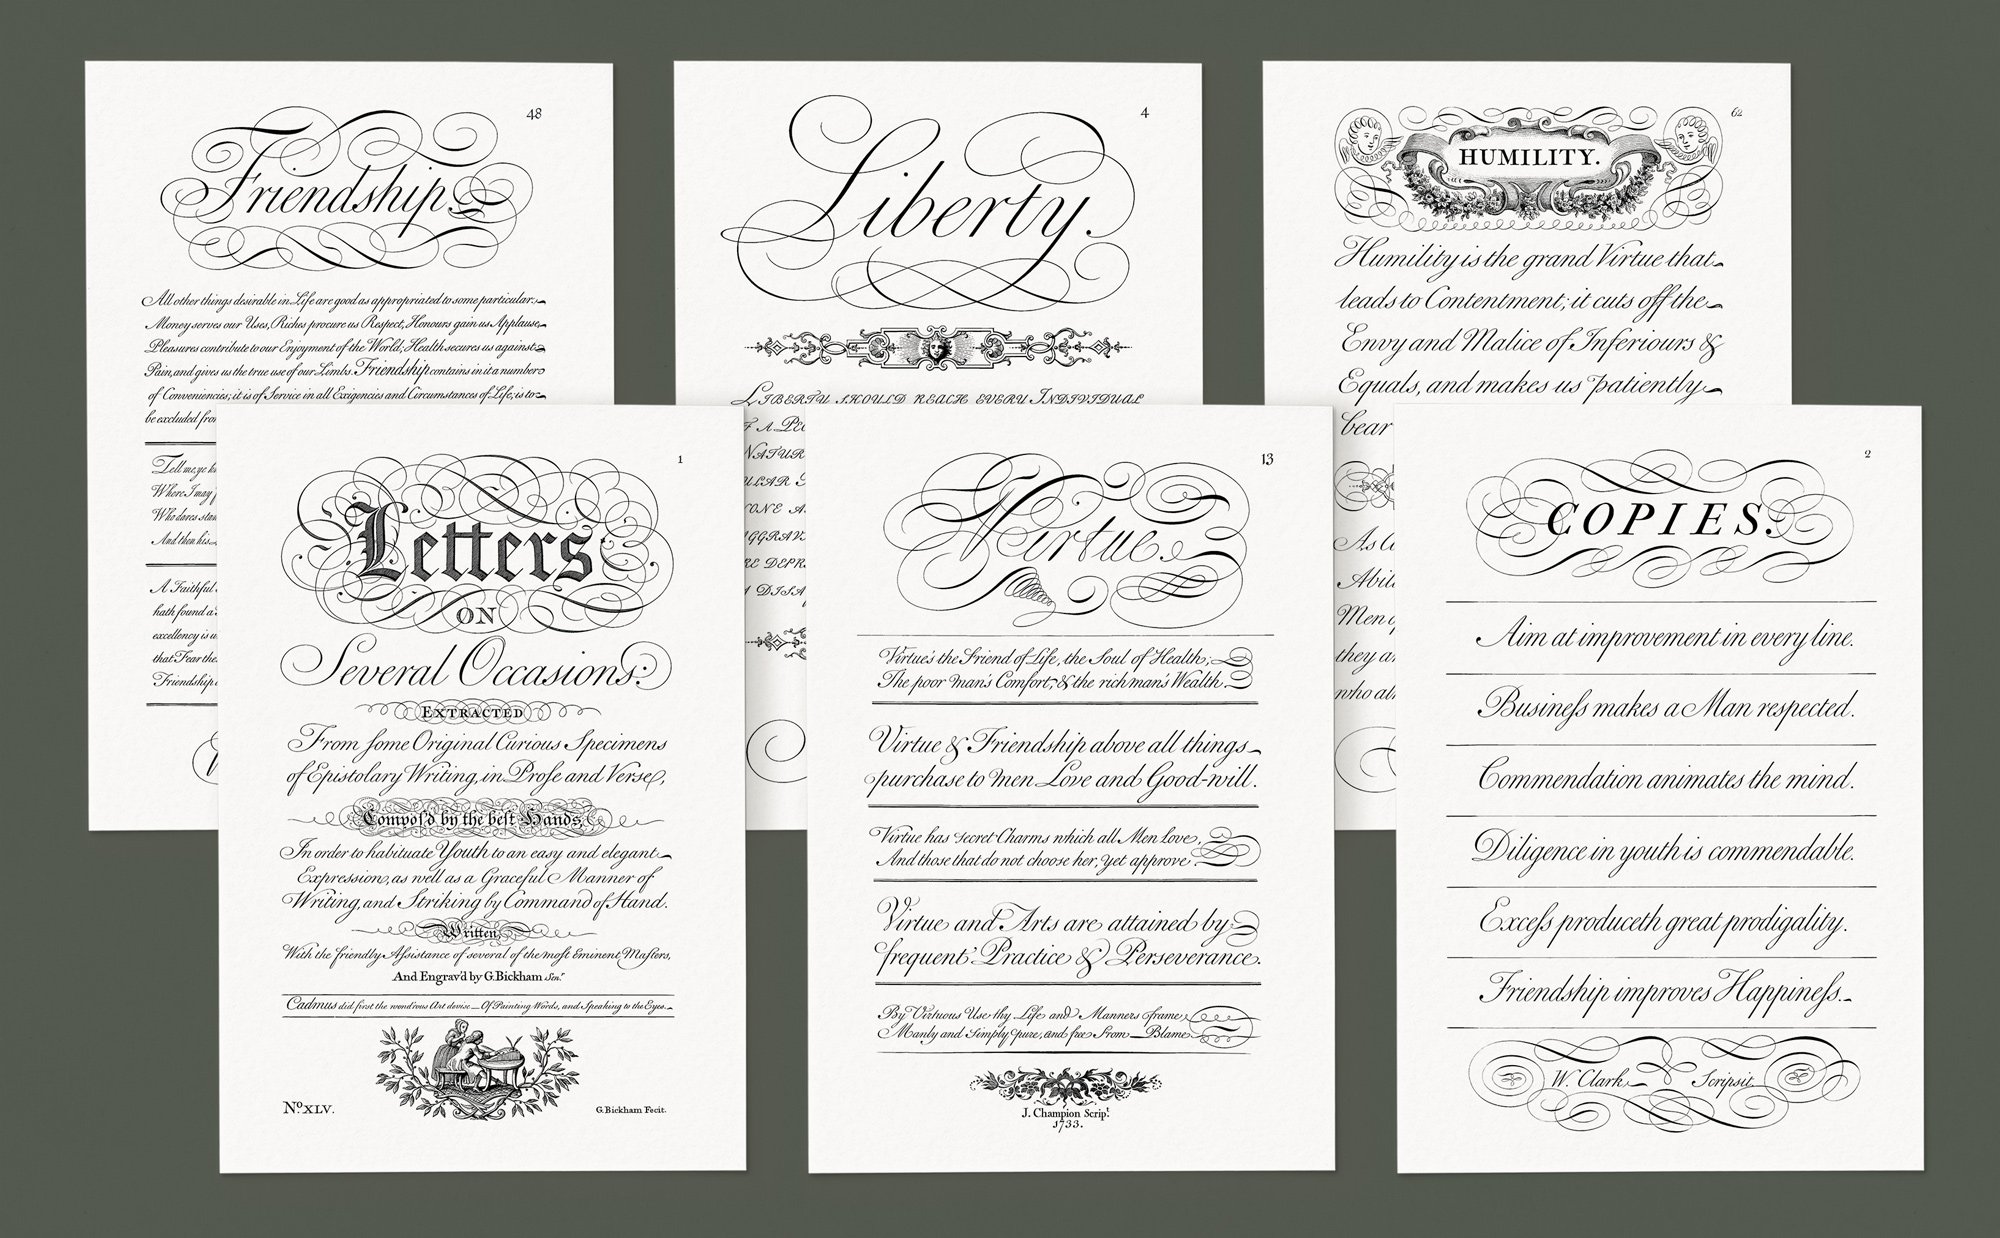 48
Friendship.
All other things desirable in Life are good as appropriated to some particular:
Money serves our Uses, Riches procure us Respect, Honours gain us Applause
Pleasures contribute to our Enjoyment of the World; Health secures us against
Pain, and gives us the true use of our Limbs. Friendship contains in it a number
of Conveniencies; it is of Service in all Exigencies and Circumstances of Life; is to
be excluded from
Tell me, ye
Where I may
Who dares
And then his
A Faithful
hath found a
excellency is
that Fear the
Friendship
4
Liberty.
LIBERTY SHOULD REACH EVERY INDIVIDUAL
OF A
NATUR
ULAR
ONE
AGGRAV
RE DEPR
A
62
HUMILITY.
Humility is the grand Virtue that
leads to Contentment; it cuts off the
Envy and Malice of Inferiours &
Equals, and makes us patiently
bear
As
Abili
Men
they a
who
1
Letters
ON
Several Occasions:
EXTRACTED
From some Original Curious Specimens
of Epistolary Writing, in Prose and Verse,
Compos'd by the beſt Hands,
In order to habituate Youth to an easy and elegant
Expression, as well as a Graceful Manner of
Writing, and Striking by Command of Hand.
Written,
With the friendly Aſsistance of several of the moſt Eminent Maſters,
And Engrav'd by G. Bickham Sinr.
Cadmus did first the wond'rous Art devise _ Of Painting Words, and Speaking to the Eyes.
No. XLV.
G. Bickham Fecit.
13
Virtue.
Virtue's the Friend of Life, the Soul of Health;
The poor Man's Comfort, & the rich man's Wealth
Virtue & Friendship above all things
purchase to Men Love and Good-will.
Virtue has secret Charms which all Men love,
And those that do not choose her, yet approve
Virtue and Arts are attained by
frequent Practice & Perseverance.
By Virtuous Use thy Life and Manners frame,
Manly and Simply pure, and free from Blame
J. Champion Scrip.t
1733.
2
COPIES.
Aim at improvement in every line.
Busineſs makes a Man respected.
Commendation animates the mind.
Diligence in youth is commendable.
Exceſs produceth great prodigality.
Friendship improves Happineſs.
W. Clark Scripsit.